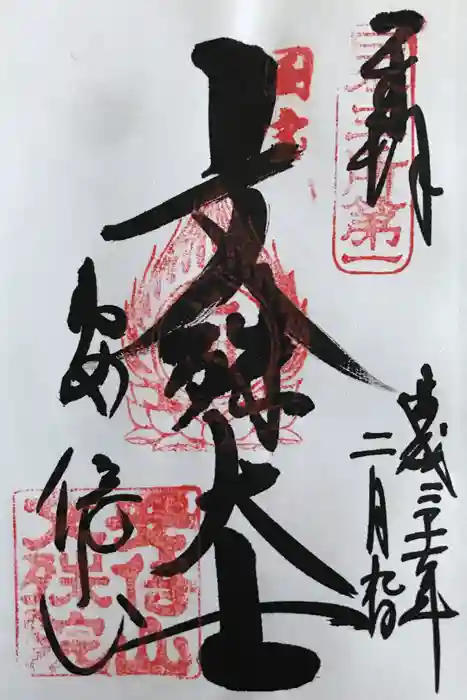 奉拝
日本三所第一
国宝
文殊大士
平成三十一年
二月九日
安倍山
安倍山
文殊院